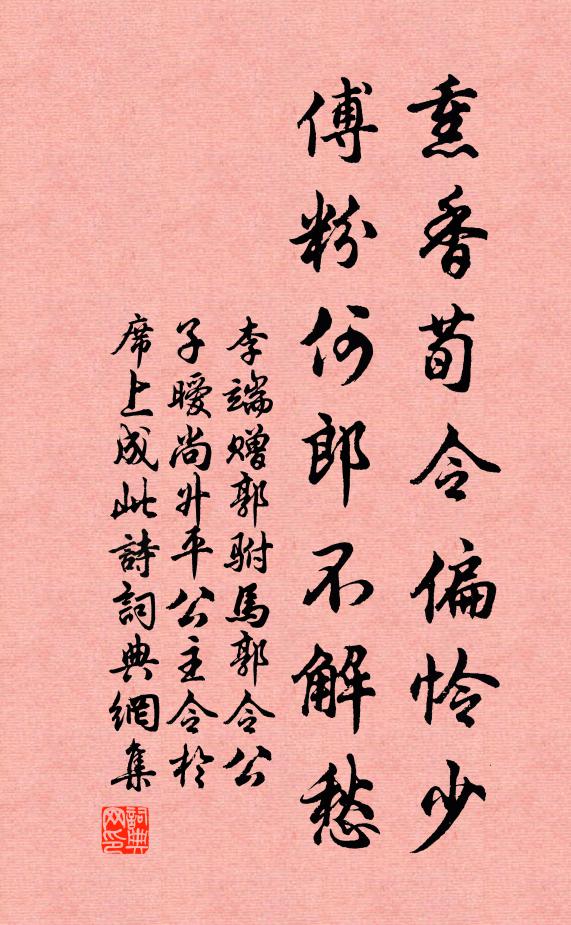 熏香荀令偏怜少
傅粉何郎不解愁
李端赠郭駙馬郭令公
子曖尚升平公主令於
席上成此詩詞典網集
詞典网印